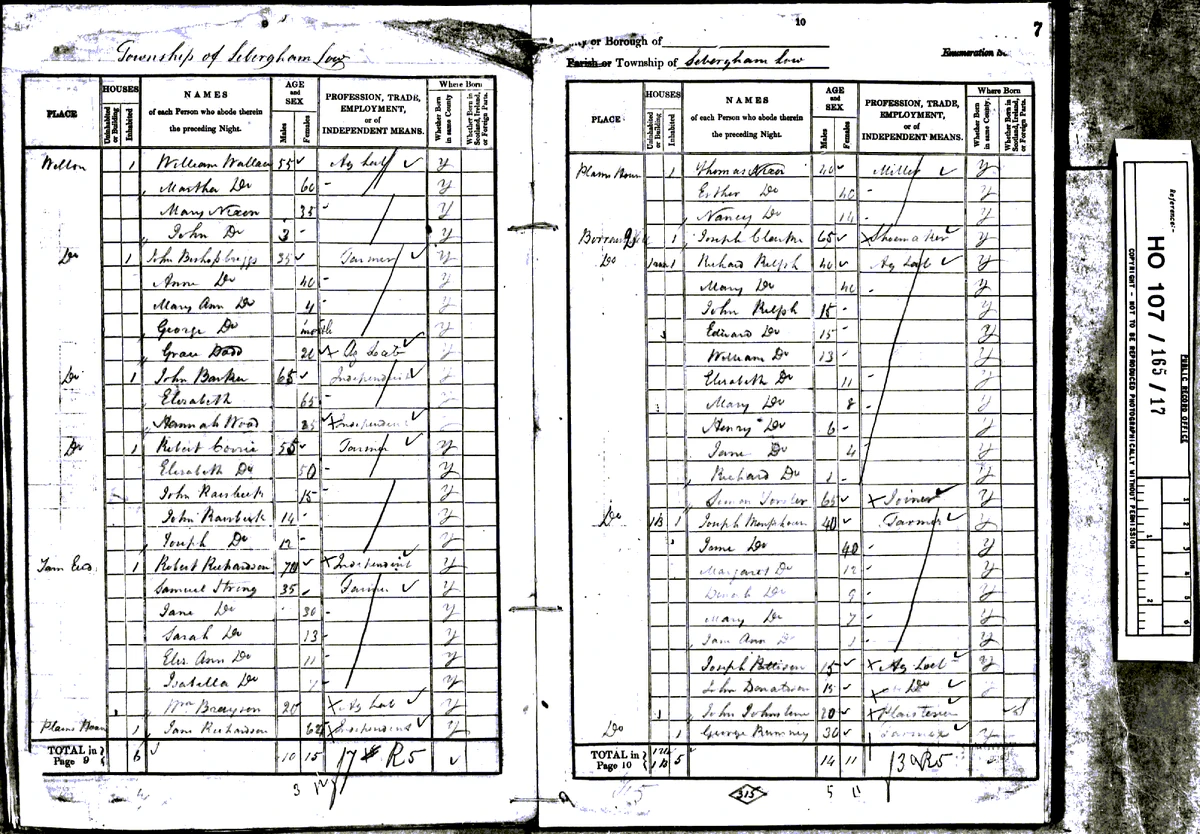 Township of Sebergham Low
PLACE
HOUSES
Uninhabited or Building
Inhabited
NAMES
of each Person who abode therein
the preceding Night.
AGE
and
SEX
Males
Females
PROFESSION, TRADE,
EMPLOYMENT,
or of
INDEPENDENT MEANS.
Where Born
Whether Born in same County
Whether Born in Scotland, Ireland, or Foreign Parts.
Welton 1 William Wallace 55 Ag Lab Y
Martha Do 60 Y
Mary Nixon 35 Y
John Do 3 Y
Do 1 John Bishopbriggs 35 Farmer Y
Anne Do 40 Y
Mary Ann Do 4 Y
George Do Y
Grace Dodd Ag Lab Y
Do 1 John Barker 65 Independent Y
Elizabeth 65 Y
Hannah Wood Independent Y
Do 1 Robert 55 Farmer Y
Elizabeth Do 50 Y
John 15 Y
John 14 Y
Joseph Do 12 Y
1 Robert Richardson 70 Independent Y
Samuel Strong 35 Farmer Y
Jane Do 30 Y
Sarah Do 13 Y
Eliz. Ann Do 11 Y
Isabella Do 7 Y
Wm 20 Ag Lab Y
1 Jane Richardson Independent Y
TOTAL in Page 9 } 6 10 15 17 R5
3 12
10
7
or Borough of
Enumeration
Parish or Township of Sebergham Low
PLACE
HOUSES
Uninhabited or Building
Inhabited
NAMES
of each Person who abode therein
the preceding Night.
AGE
and
SEX
Males
Females
PROFESSION, TRADE,
EMPLOYMENT,
or of
INDEPENDENT MEANS.
Where Born
Whether Born in same County.
Whether Born in Scotland, Ireland, or Foreign Parts.
1 Thomas Nixon 40 Miller Y
Esther Do 40 Y
Nancy Do 14 Y
1 Joseph Clarke 65 Shoemaker Y
Do 1 Richard Relph 40 Ag Lab Y
Mary Do 40 Y
John Relph 15 Y
Edward Do 15 Y
William Do 13 Y
Elizabeth Do 11 Y
Mary Do 8 Y
Henry Do 6 Y
Jane Do 4 Y
Richard Do 1 Y
Simon 65 Joiner Y
Do 1B 1 Joseph 40 Farmer Y
Jane Do 40 Y
Margaret Do 12 Y
Do 9 Y
Mary Do 7 Y
Jane Ann Do 1 Y
Joseph Pattison 15 Ag Lab Y
John 15 Do Y
John Johnstone 20 Plaisterer S
Do 1 George Rumney 30 Farmer Y
TOTAL in Page 10 } 1B 5 14 11 13 R5
315
5 11
Reference:-
HO 107 / 165 / 17
PUBLIC RECORD OFFICE
COPYRIGHT - NOT TO BE REPRODUCED PHOTOGRAPHICALLY WITHOUT PERMISSION
1
2
3
4
5
6
1
2